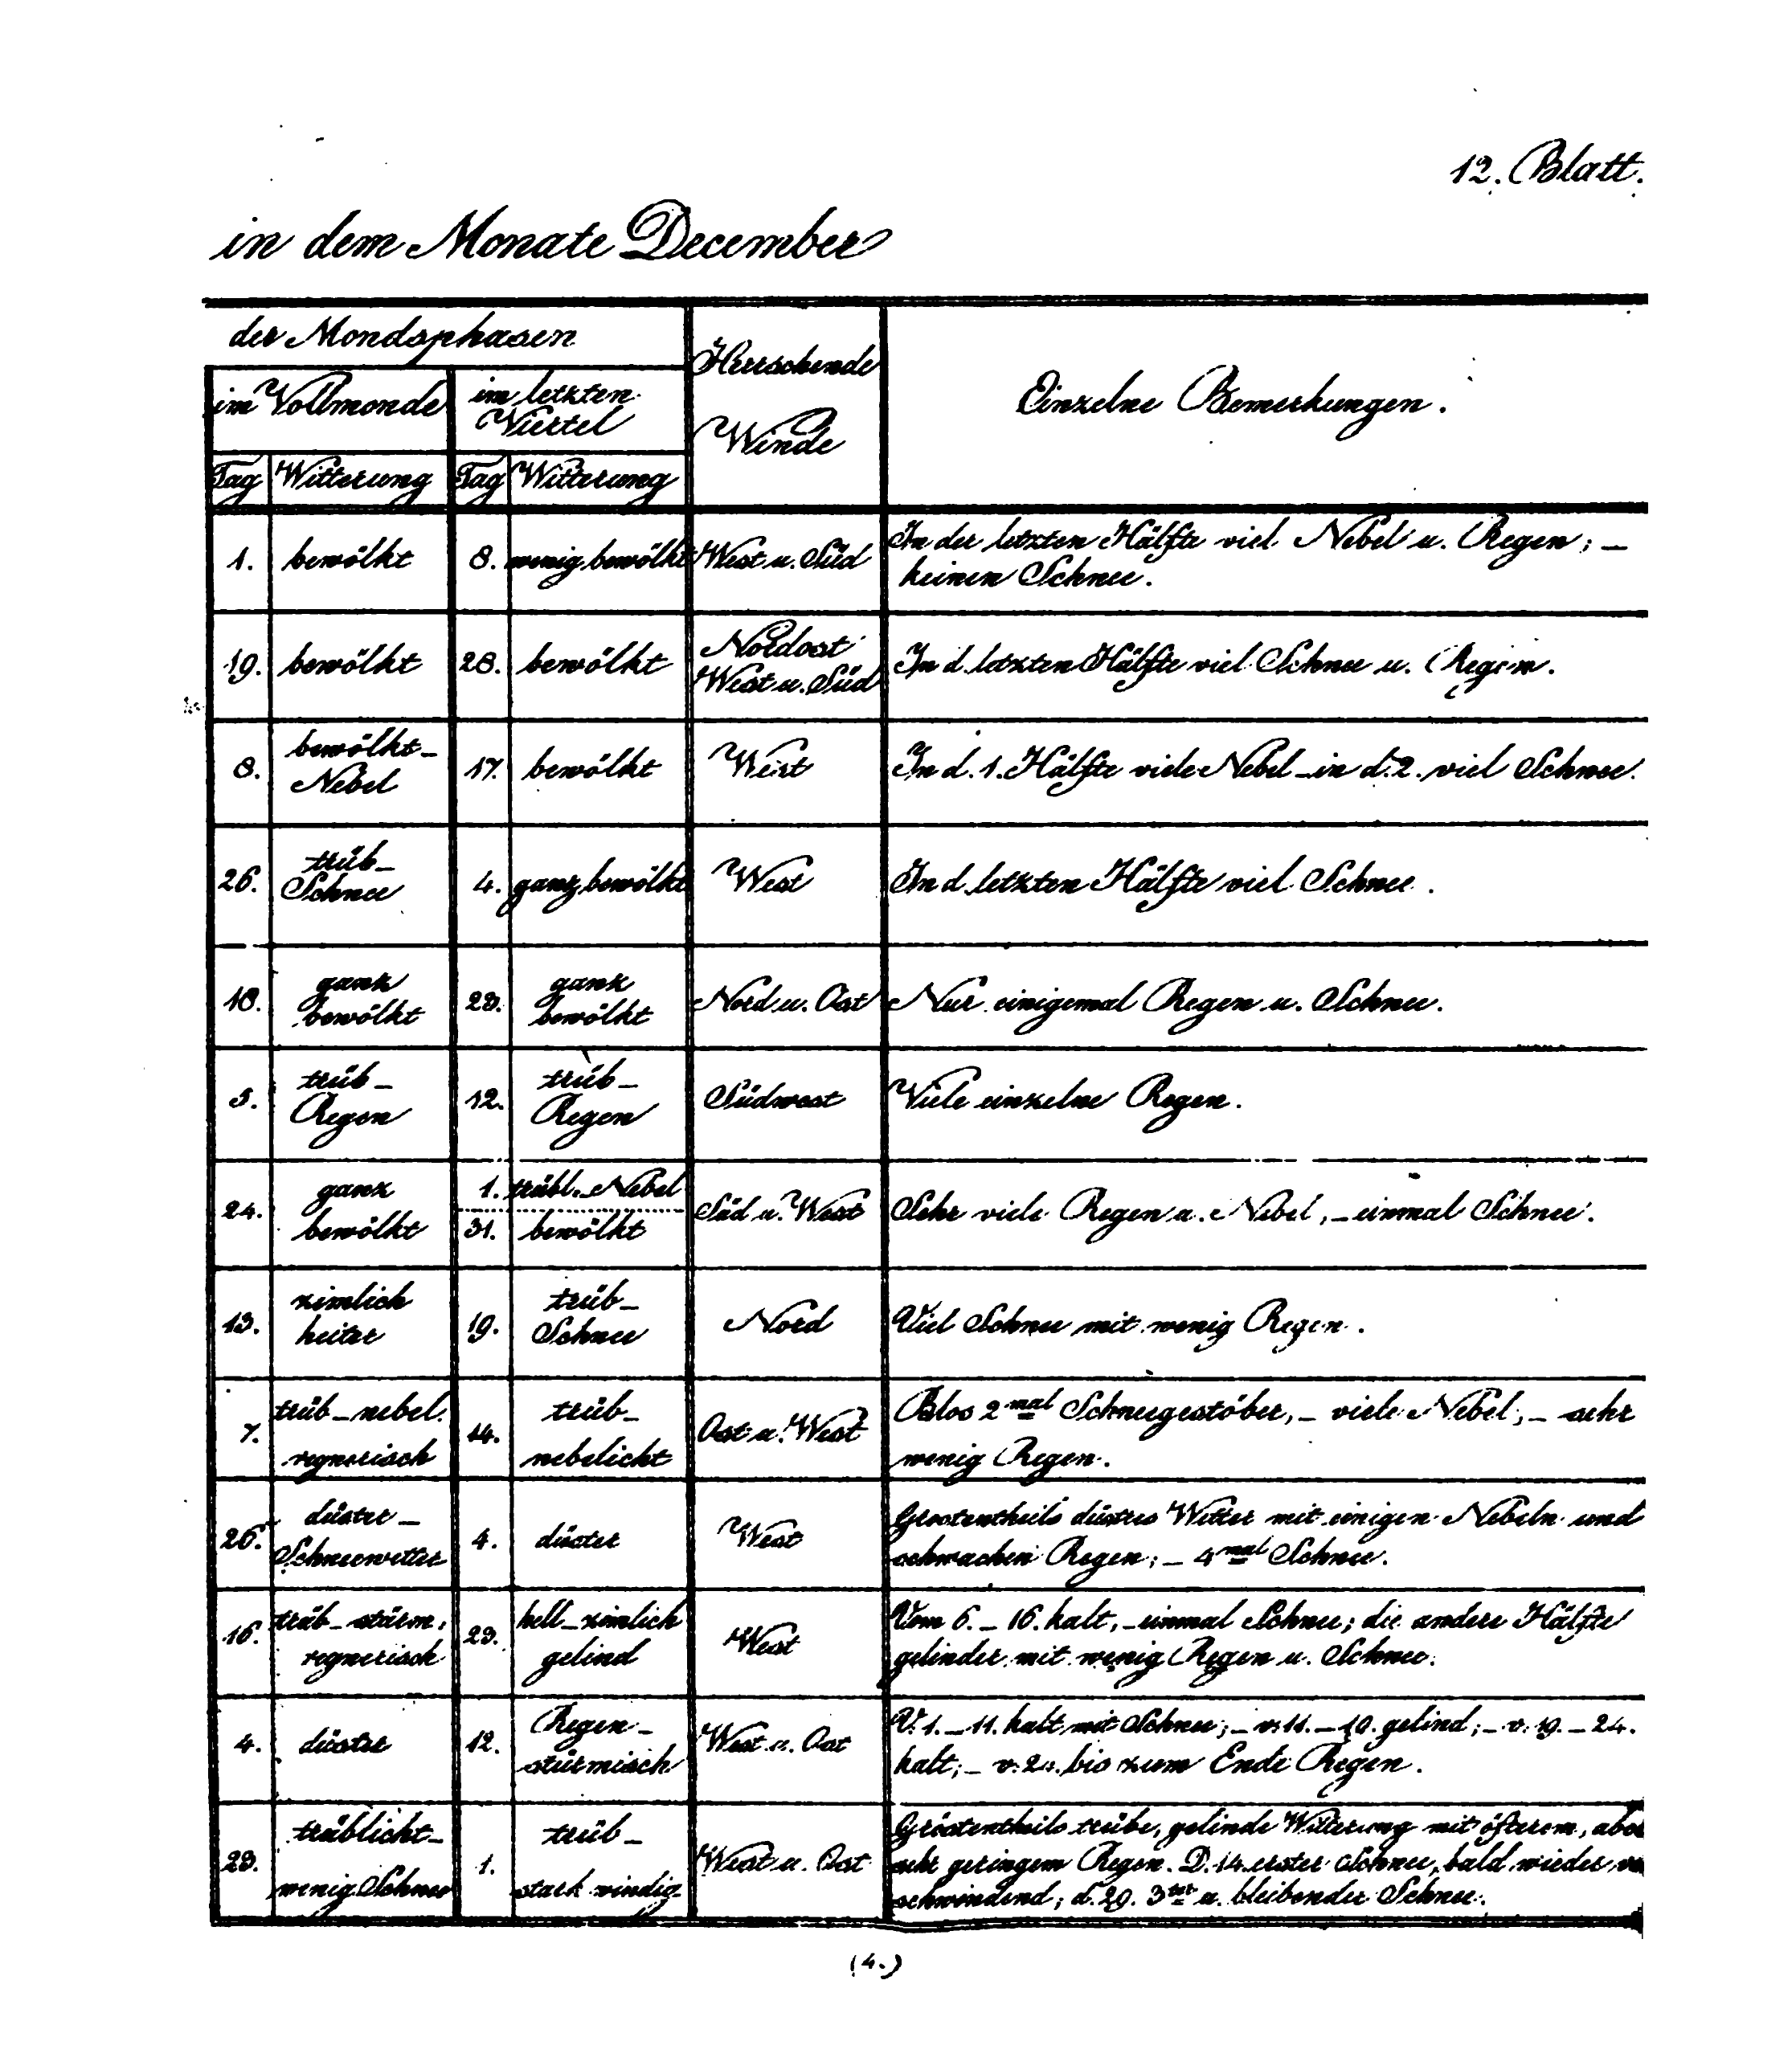 12. Blatt.
in dem Monate December
der Mondsphasen
Herrschende
Winde
Einzelne Bemerkungen.
im Vollmonde
im letzten
Viertel
Tag Witterung Tag Witterung
1. bewölkt 8. wenig bewölkt West u. Süd In der letzten Hälfte viel Nebel u. Regen; –
keinen Schnee.
19. bewölkt 28. bewölkt Nordost
West u. Süd
In d. letzten Hälfte viel Schnee u. Regen.
8. bewölkt –
Nebel
17. bewölkt West In d. 1. Hälfte viele Nebel – in d. 2. viel Schnee.
26. trüb –
Schnee
4. ganz bewölkt West In d. letzten Hälfte viel Schnee.
18. ganz
bewölkt
23. ganz
bewölkt
Nord u. Ost Nur einigemal Regen u. Schnee.
5. trüb –
Regen
12. trüb –
Regen
Südwest Viele einzelne Regen.
24. ganz
bewölkt
1. trübl. Nebel
31. bewölkt
Süd u. West Sehr viele Regen u. Nebel, – einmal Schnee.
13. zimlich
heiter
19. trüb –
Schnee
Nord Viel Schnee mit wenig Regen.
7. trüb – nebel.
regnerisch
14. trüb –
nebelicht
Ost u. West Blos 2mal Schneegestöber, – viele Nebel, – sehr
wenig Regen.
26. düster –
Schneewetter
4. düster West Grostentheils düstres Wetter mit einigen Nebeln und
schwachen Regen; – 4mal Schnee.
16. trüb – stürm.
regnerisch
23. hell – zimlich
gelind
West Vom 6. – 16. kalt, – einmal Schnee; die andere Hälfte
gelinder mit wenig Regen u. Schnee.
4. düster 12. Regen –
stürmisch
West u. Ost V. 1. – 11. kalt mit Schnee; – v. 11. – 19. gelind; – v. 19. – 24.
kalt; – v. 24. bis zum Ende Regen.
23. trüblicht –
wenig Schnee
1. trüb –
stark windig
West u. Ost Gröstentheils trübe, gelinde Witterung mit öfterem, aber
sehr geringem Regen. D. 14. erster Schnee, bald wieder ver
schwindend; d. 29. 3ter u. bleibender Schnee.
(4.)